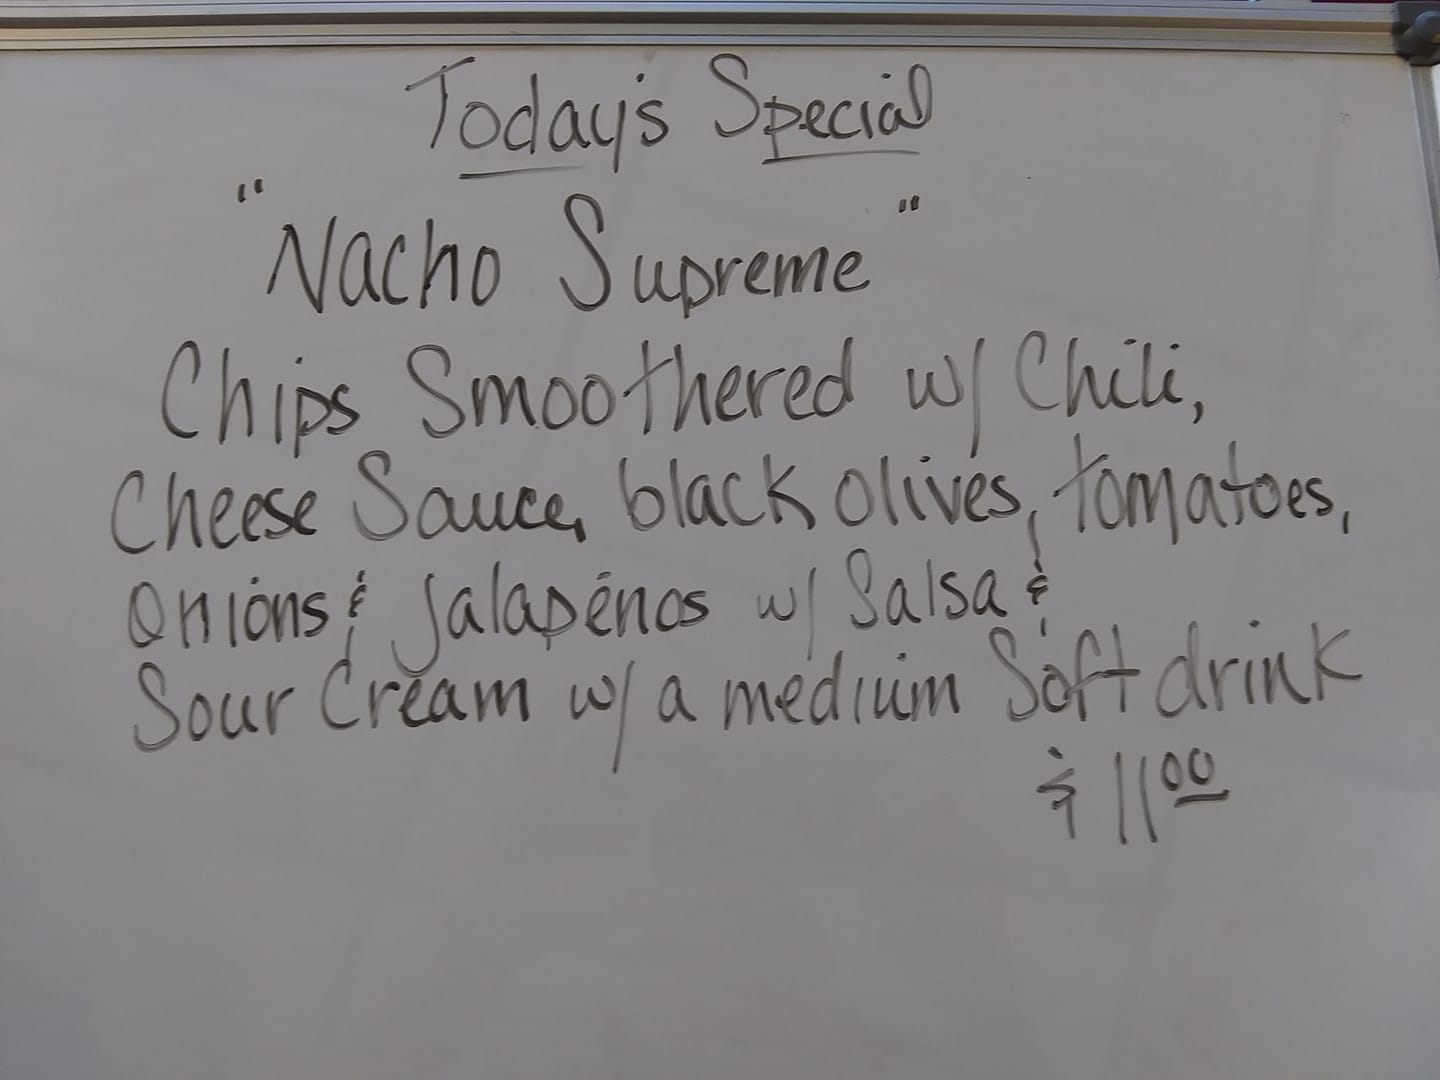 Today's Special
"Nacho Supreme"
Chips Smoothered w/ Chili,
Cheese Sauce, black olives, tomatoes,
Onions & jalapénos w/ Salsa &
Sour Cream w/ a medium Soft drink
$ 11.00